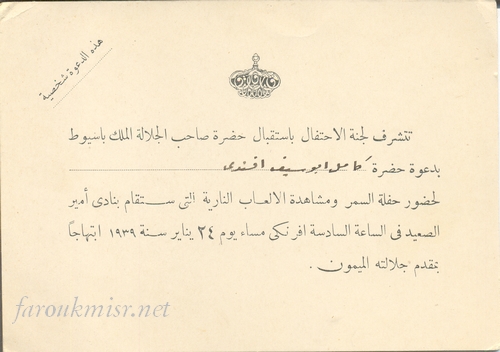 هذه الدعوة شخصية
تتشرف لجنة الاحتفال باستقبال حضرة صاحب الجلالة الملك باسيوط
بدعوة حضرة كامل ابوسيف افندى
لحضور حفلة السمر ومشاهدة الالعاب النارية التى ستقام بنادى أمير
الصعيد فى الساعة السادسة افرنكى مساء يوم ٢٤ يناير سنة ١٩٣٩ ابتهاجاً
بمقدم جلالته الميمون .
faroukmisr.net